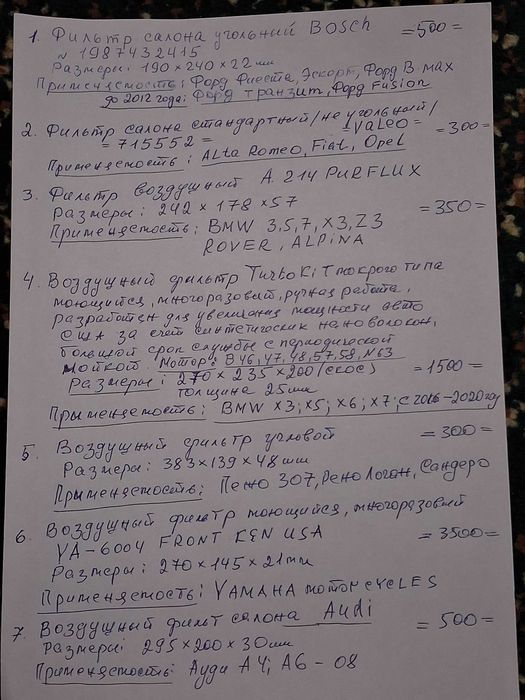 1. Фильтр салона угольный BOSCH =500=
№ 1987432415
Размеры: 190×240×22 мм
Применяемость: Форд Фиеста, Эскорт, Форд B. max
до 2012 года: Форд транзит, Форд Fusion
2. Фильтр салона стандартный/не угольный/
=715552= =Valeo= =300=
Применяемость: Alta Romeo, Fiat, Opel
3. Фильтр воздушный A. 214 PURFLUX
Размеры: 242×178×57 =350=
Применяемость: BMW 3,5,7, X3, Z3
ROVER, ALPINA
4. Воздушный фильтр Turbo KiT мокрого типа
моющийся, многоразовый, ручная работа,
разработан для увеличения мощности авто
США за счёт синтетических нановолокон,
большой срок службы с периодической
мойкой. Мотор: B46, 47, 48, 57, 58, N63
Размеры: 270×235×200 (скос) =1500=
Толщина 25мм
Прыменяемость: BMW X3; X5; X6; X7; с 2016-2020 год
5. Воздушный фильтр угловой =300=
Размеры: 383×139×48 мм
Прыменяемость: Пежо 307, Рено Логан, Сандеро
6. Воздушный фильтр моющийся, многоразовый
YA-6004 FRONT KEN USA =3500=
Размеры: 270×145×21мм
Применяемость: YAMAHA мотоCYCLES
7. Воздушный фильт салона Audi =500=
Размеры: 295×200×30мм
Применяемость: Ауди A4; A6-08